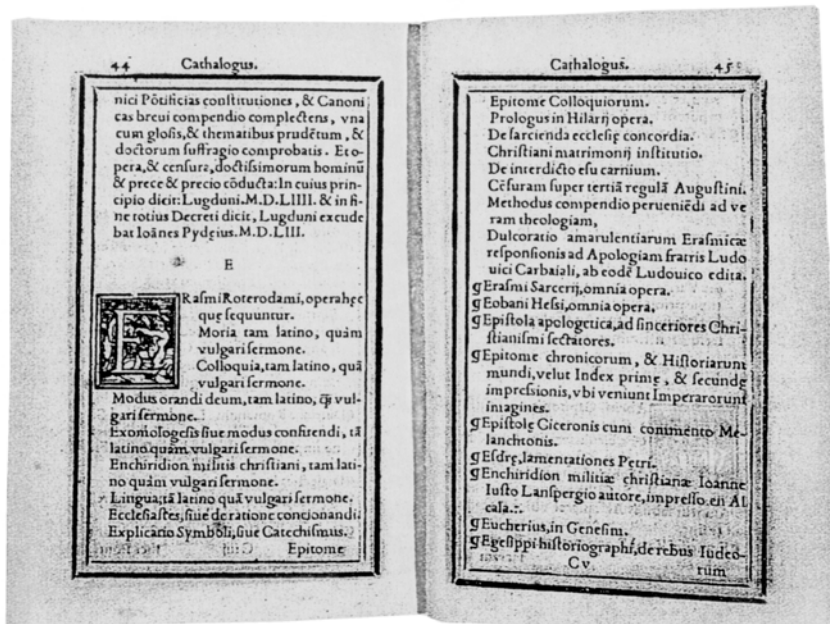 44 Cathalogus.
nici Põtificias constitutiones, & Canoni
cas breui compendio complectens, vna
cum glosis, & thematibus prudẽtum, &
doctorum suffragio comprobatis. Et o-
pera, & censura, doctissimorum hominũ
& prece & precio cõducta: In cuius prin-
cipio dicit: Lugduni. M.D.LIIII. & in fi-
ne totius Decreti dicit, Lugduni excude
bat Ioãnes Pydeius. M.D.LIII.
E
ERasmi Roterodami, opera hęc
que sequuntur.
Moria tam latino, quàm
vulgari sermone.
Colloquia, tam latino, quã
vulgari sermone.
Modus orandi deum, tam latino, q̃ vul-
gari sermone.
Exomologesis siue modus confitendi, tã
latino quàm vulgari sermone.
Enchiridion militis christiani, tam lati-
no quàm vulgari sermone.
Lingua, tã latino quã vulgari sermone.
Ecclesiastes, siue de ratione concionandi.
Explicatio Symboli, siue Catechismus.
Epitome
Cathalogus. 45
Epitome Colloquiorum.
Prologus in Hilarij opera.
De sarcienda ecclesię concordia.
Christiani matrimonij institutio.
De interdicto esu carnium.
Cẽsuram super tertiã regulã Augustini.
Methodus compendio perueniẽdi ad ve
ram theologiam,
Dulcoratio amarulentiarum Erasmicæ
responsionis ad Apologiam fratris Ludo
uici Carbaiali, ab eodẽ Ludouico edita.
¶Erasmi Sarcerij, omnia opera.
¶Eobani Hessi, omnia opera.
¶Epistola apologetica, ad sinceriores Chri-
stianismi sectatores.
¶Epitome chronicorum, & Historiarum
mundi, velut Index primę, & secundę
impressionis, vbi veniunt Imperatorum
imagines.
¶Epistolę Ciceronis cum commento Me-
lanchtonis.
¶Esdrę, lamentationes Petri.
¶Enchiridion militiæ christianæ Ioanne
Iusto Lanspergio autore, impresso en Al
cala.:.
¶Eucherius, in Genesim.
¶Egesippi historiographi, de rebus Iudeo-
C v. rum